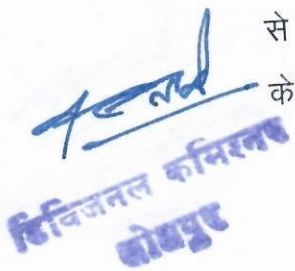 से
के
डिविजनल कमिश्नर
जोधपुर